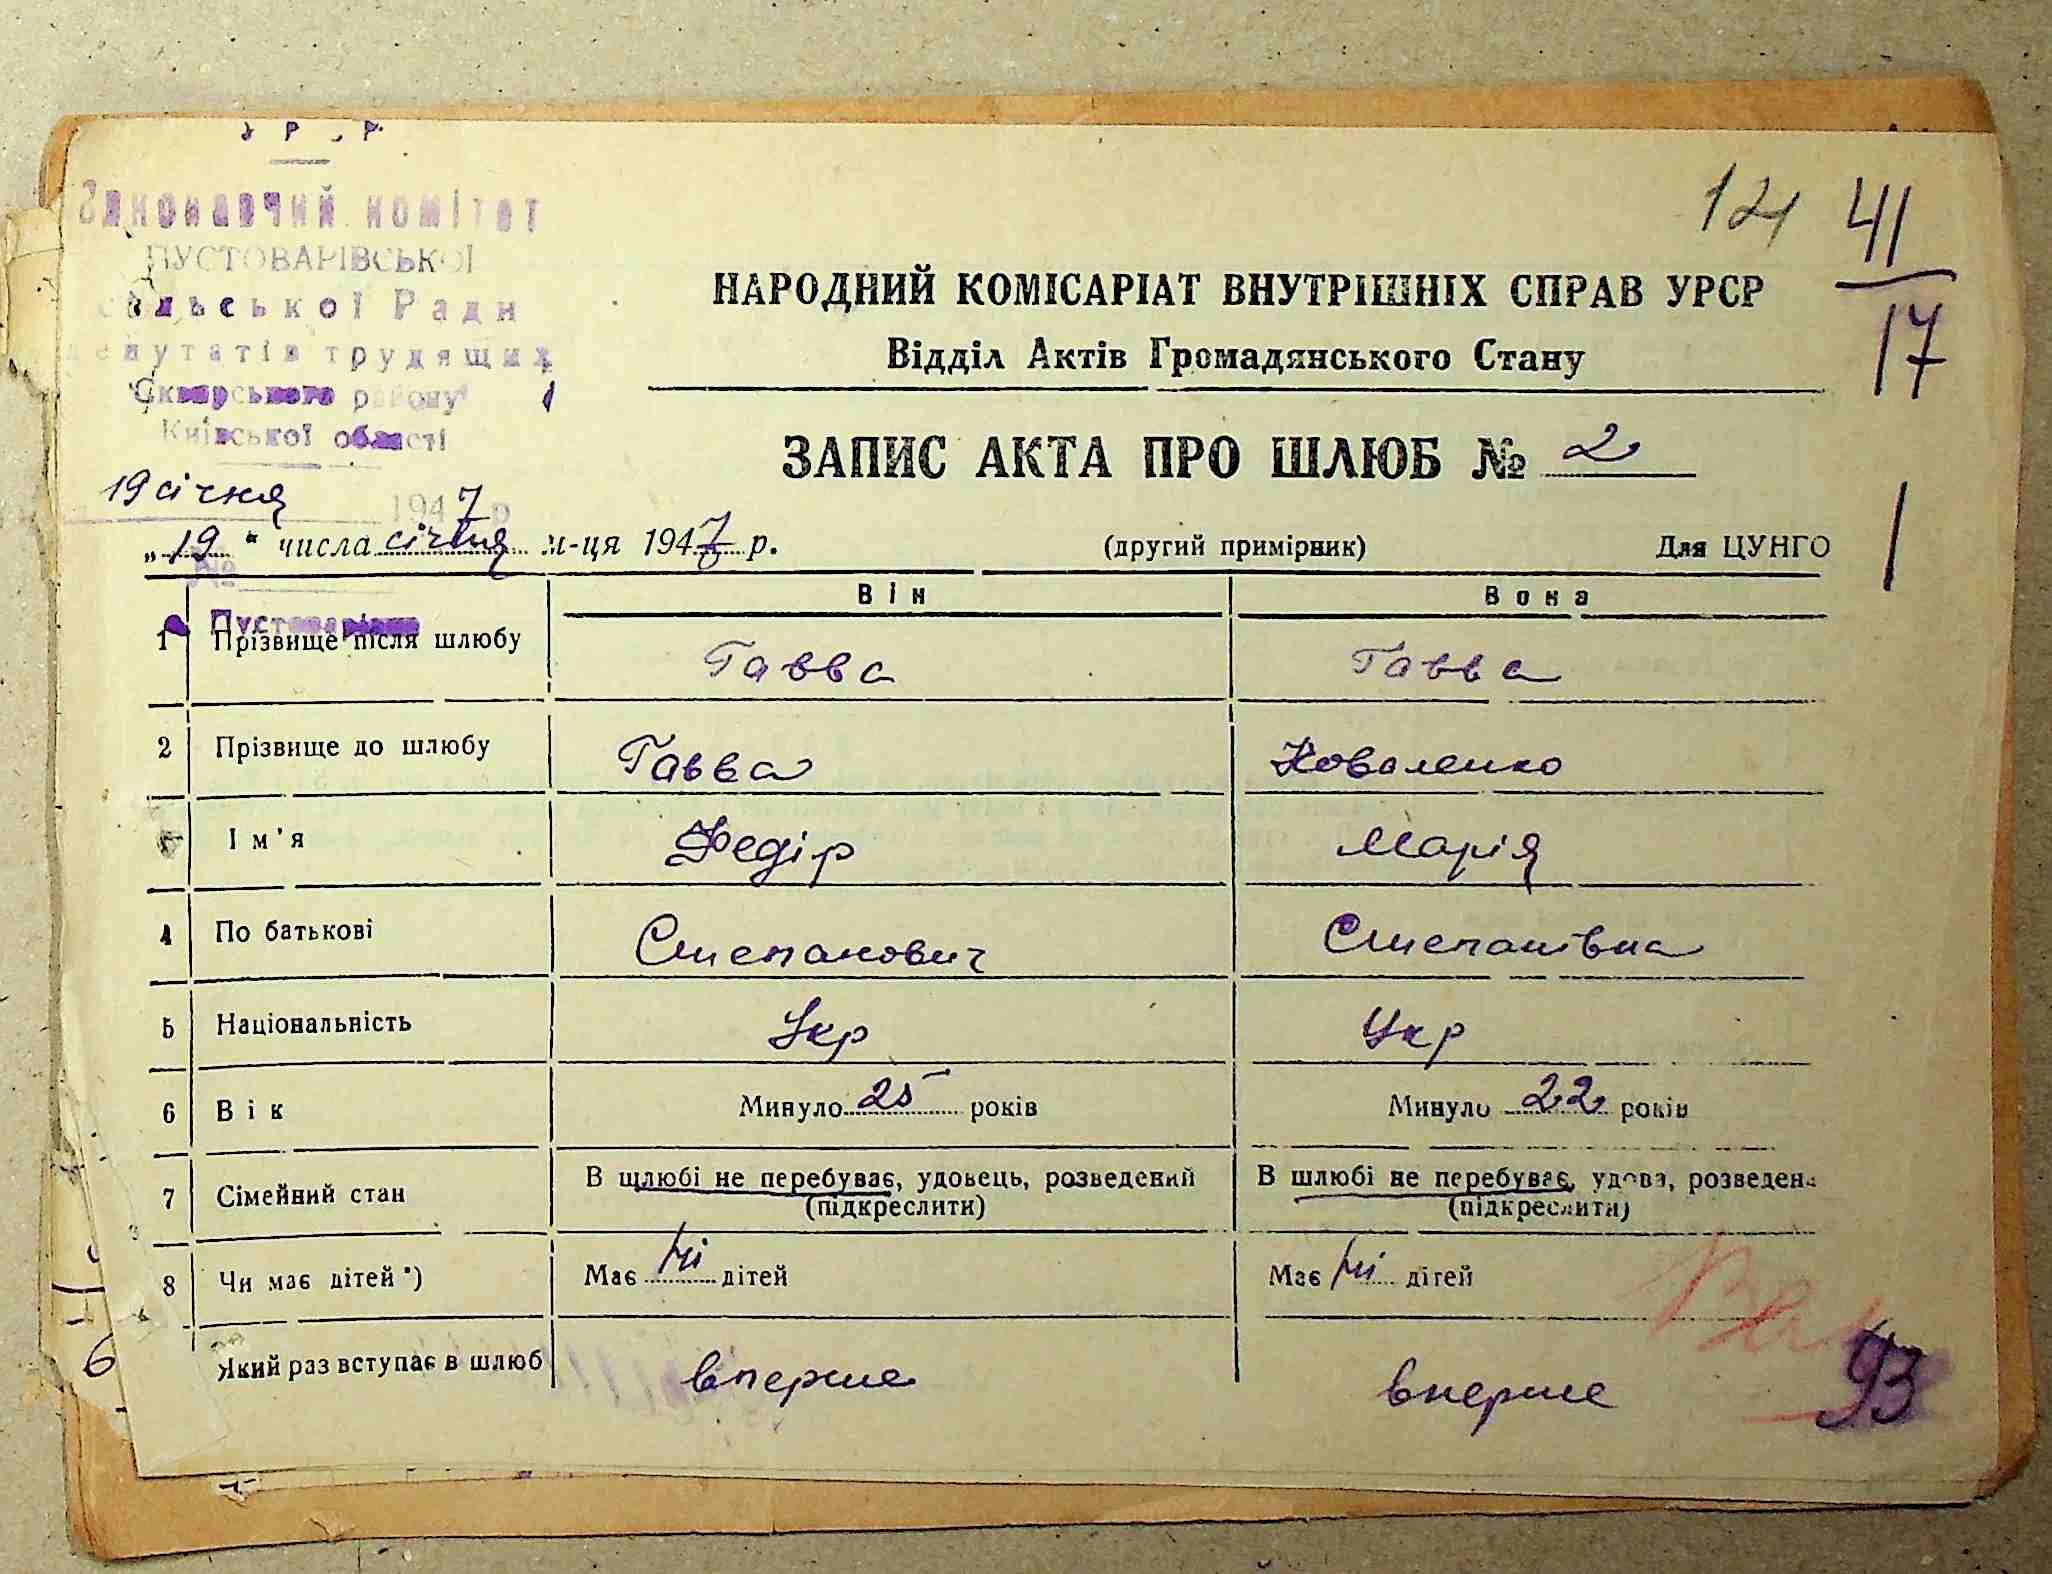 Виконавчий комітет
ПУСТОВАРІВСЬКОЇ
сільської Ради
депутатів трудящих
Сквирського району
Київської області
19 січня 1947 р
№
Пустоварівка
124 41
17
НАРОДНИЙ КОМІСАРІАТ ВНУТРІШНІХ СПРАВ УРСР
Відділ Актів Громадянського Стану
ЗАПИС АКТА ПРО ШЛЮБ № 2
„19“ числа січня м-ця 1947 р. (другий примірник) Для ЦУНГО
Він Вона
1 Прізвище після шлюбу Гавва Гавва
2 Прізвище до шлюбу Гавва Коваленко
Ім'я Федір Марія
4 По батькові Степанович Степанівна
5 Національність Укр Укр
6 Вік Минуло 25 років Минуло 22 років
7 Сімейний стан В шлюбі не перебуває, удовець, розведений В шлюбі не перебуває, удова, розведена
(підкреслити) (підкреслити)
8 Чи має дітей *) Має ні дітей Має ні дітей
Який раз вступає в шлюб вперше вперше
93
6